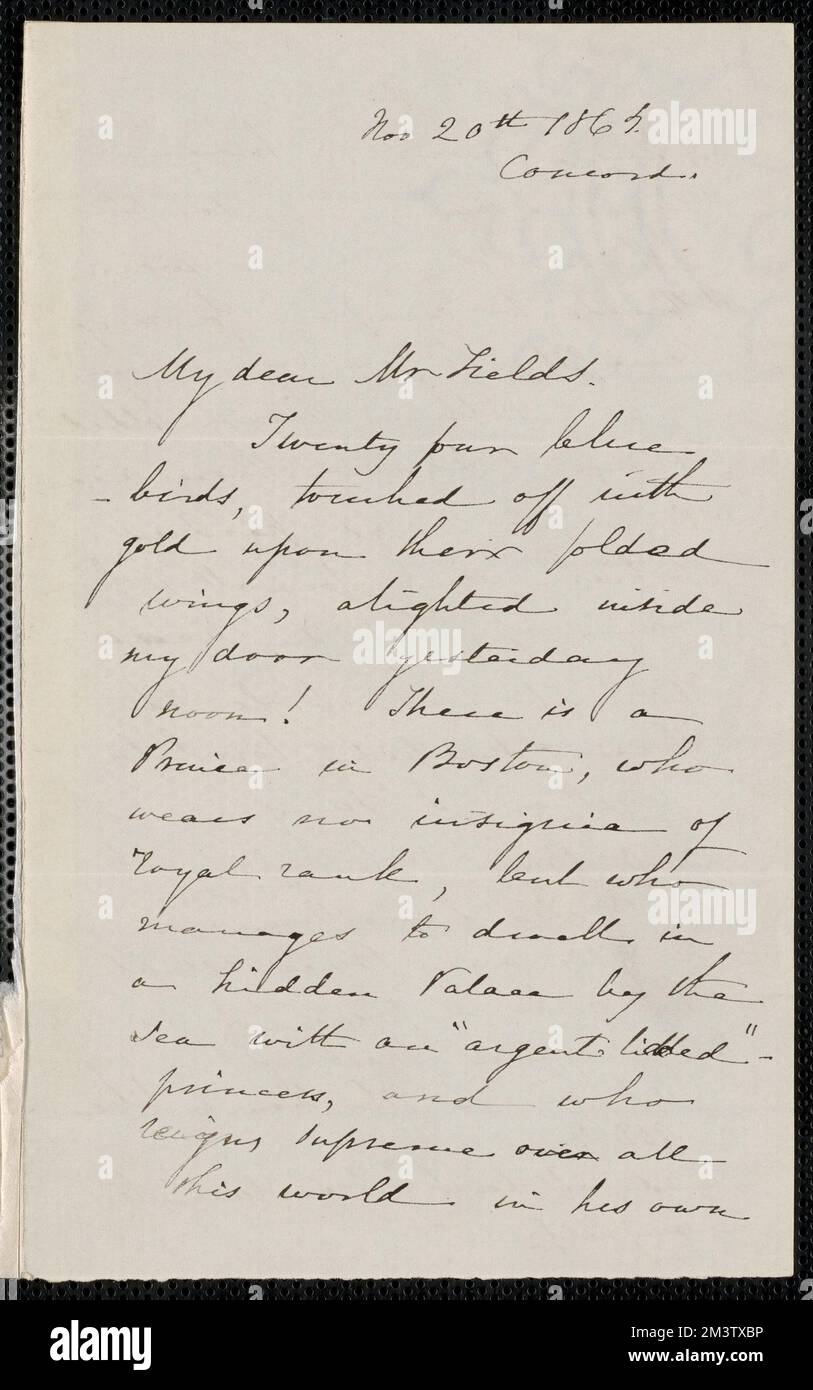 Nov 20th 1865.
Concord.
My dear Mr Fields.
Twenty four blue
-birds, touched off with
gold upon their folded
wings, alighted inside
my door yesterday
noon! There is a
Prince in Boston, who
wears no insignia of
royal rank, but who
manages to dwell in
a hidden Palace by the
sea with an "argent lidded"-
princess, and who
reigns supreme over all
this world in his own
alamy
alamy
alamy
alamy
Image ID: 2M3TXBP
www.alamy.com